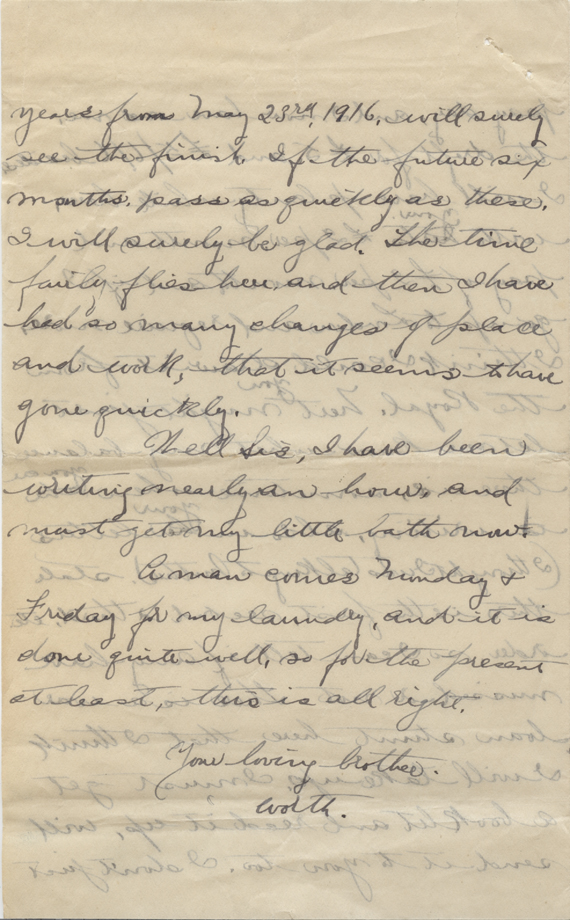 years from May 23rd, 1916, will surely
see the finish. If the future six
months. pass as quickly as these.
I will surely be glad. The time
fairly flies here and then I have
had so many changes of place
and work, that it seems to have
gone quickly.
Well Sis, I have been
writing nearly an hour, and
must get my little bath now.
A man comes Monday &
Friday for my laundry, and it is
done quite well, so for the present
at least, this is all right.
Your loving brother.
Worth.